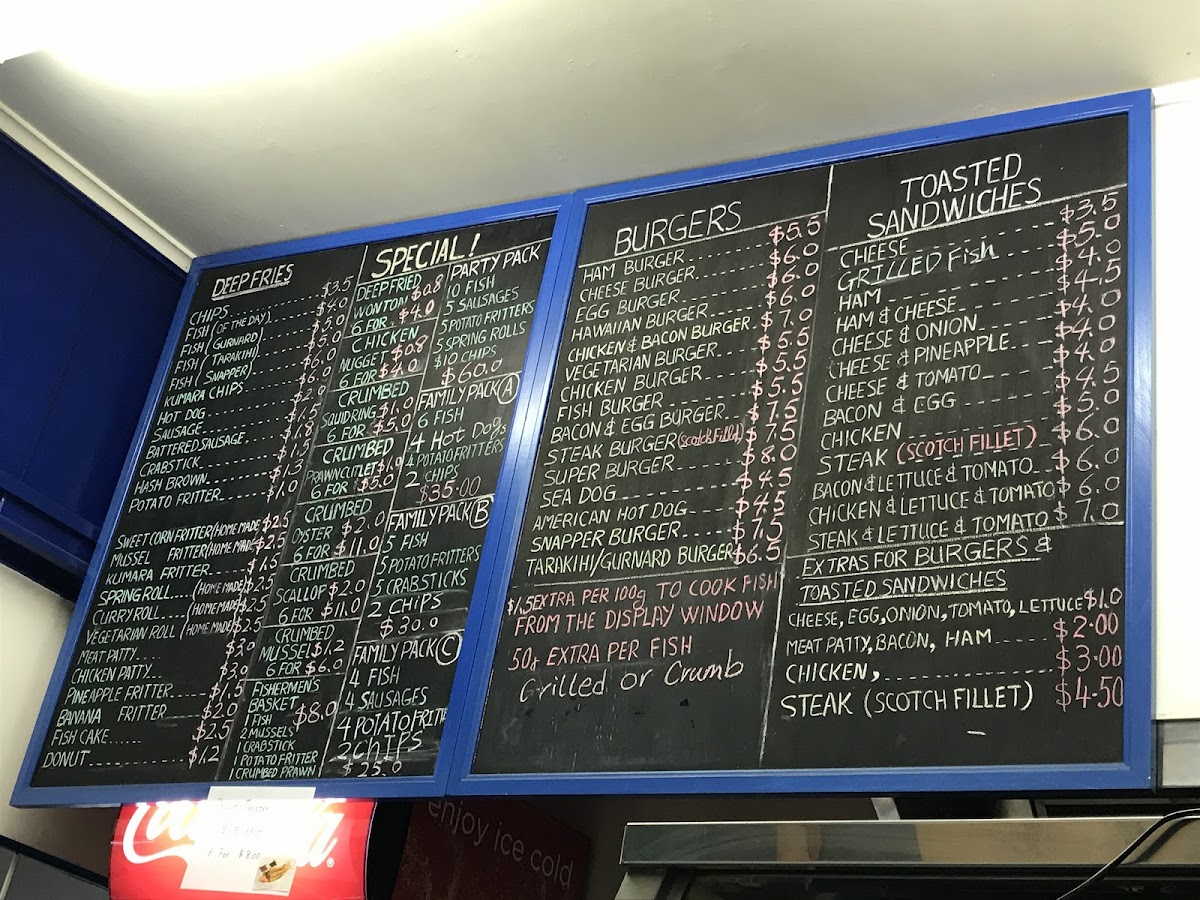 DEEP FRIES
CHIPS $3.5
FISH (OF THE DAY) $4.0
FISH (GURNARD) $5.0
FISH (TARAKIHI) $5.0
FISH (SNAPPER) $6.0
KUMARA CHIPS $6.0
HOT DOG
SAUSAGE $1.5
BATTERED SAUSAGE $1.8
CRABSTICK
HASH BROWN $1.3
POTATO FRITTER $1.0
SWEET CORN FRITTER (HOME MADE $2.5
MUSSEL FRITTER (HOME MADE $2.5
KUMARA FRITTER $1.5
SPRING ROLL (HOME MADE) $2.5
CURRY ROLL (HOME MADE $2.5
VEGETARIAN ROLL (HOME MADE $2.5
MEAT PATTY $3.0
CHICKEN PATTY $3.0
PINEAPPLE FRITTER $1.5
BANANA FRITTER $2.0
FISH CAKE $2.5
DONUT $1.2
SPECIAL!
DEEP FRIED
WONTON $0.8
6 FOR $4.0
CHICKEN
NUGGET $0.8
6 FOR $4.0
CRUMBED
SQUID RING $1.0
6 FOR $5.0
CRUMBED
PRAWN CUTLET $1.0
6 FOR $5.0
CRUMBED
OYSTER $2.0
6 FOR $11.0
CRUMBED
SCALLOP $2.0
6 FOR $11.0
CRUMBED
MUSSEL $1.2
6 FOR $6.0
FISHERMEN'S
BASKET $8.0
1 FISH
2 MUSSELS
1 CRABSTICK
1 POTATO FRITTER
1 CRUMBED PRAWN
PARTY PACK
10 FISH
5 SAUSAGES
5 POTATO FRITTERS
5 SPRING ROLLS
$10 CHIPS
$60.0
FAMILY PACK (A)
6 FISH
4 Hot Dogs
4 POTATO FRITTERS
2 CHIPS
$35.00
FAMILY PACK (B)
5 FISH
5 POTATO FRITTERS
5 CRABSTICKS
2 CHIPS
$30.0
FAMILY PACK (C)
4 FISH
4 SAUSAGES
4 POTATO FRITTE
2 CHIPS
$25.0
BURGERS
HAM BURGER $5.5
CHEESE BURGER $6.0
EGG BURGER $6.0
HAWAIIAN BURGER $6.0
CHICKEN & BACON BURGER $7.0
VEGETARIAN BURGER $5.5
CHICKEN BURGER $5.5
FISH BURGER $5.5
BACON & EGG BURGER $7.5
STEAK BURGER (scotch Fillet) $7.5
SUPER BURGER $8.0
SEA DOG $4.5
AMERICAN HOT DOG $4.5
SNAPPER BURGER $7.5
TARAKIHI/GURNARD BURGER $6.5
$1.5 EXTRA PER 100g TO COOK FISH
FROM THE DISPLAY WINDOW
50¢ EXTRA PER FISH
Grilled or Crumb
TOASTED
SANDWICHES
CHEESE $3.5
GRILLED Fish $5.0
HAM $4.0
HAM & CHEESE $4.5
CHEESE & ONION $4.0
CHEESE & PINEAPPLE $4.0
CHEESE & TOMATO $4.0
BACON & EGG $4.5
CHICKEN $5.0
STEAK (SCOTCH FILLET) $6.0
BACON & LETTUCE & TOMATO $6.0
CHICKEN & LETTUCE & TOMATO $6.0
STEAK & LETTUCE & TOMATO $7.0
EXTRAS FOR BURGERS &
TOASTED SANDWICHES
CHEESE, EGG, ONION, TOMATO, LETTUCE $1.0
MEAT PATTY, BACON, HAM $2.00
CHICKEN, $3.00
STEAK (SCOTCH FILLET) $4.50
enjoy ice cold